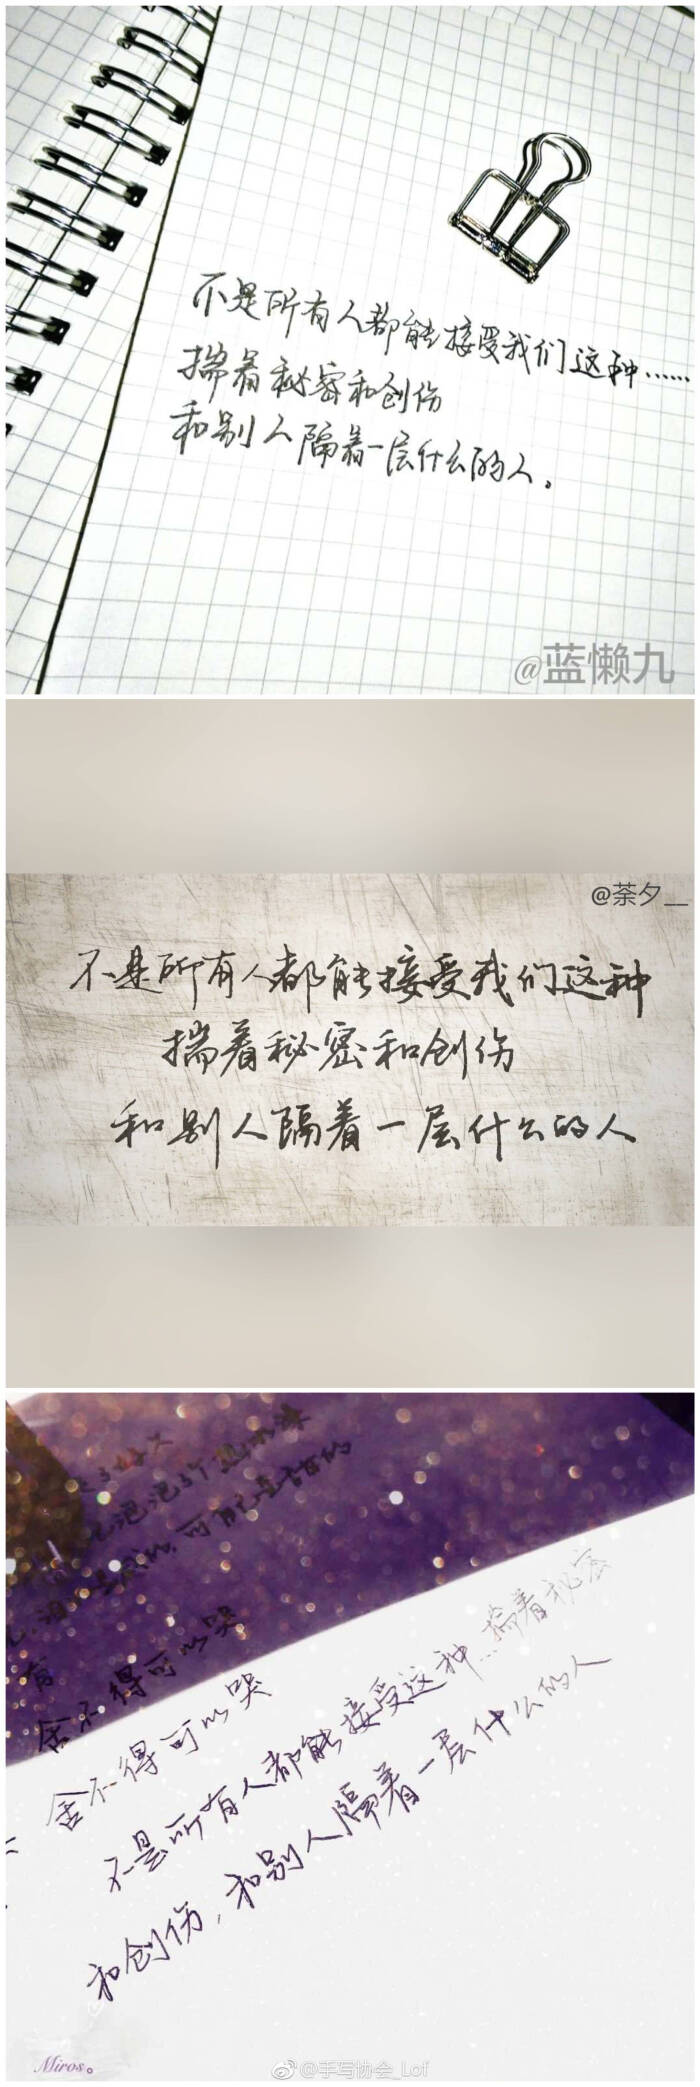 不是所有人都能接受我们这种……
揣着秘密和创伤
和别人隔着一层什么的人。
@蓝懒九
@荼夕__
不是所有人都能接受我们这种
揣着秘密和创伤
和别人隔着一层什么的人
舍不得可以哭
舍不得可以哭
不是所有人都能接受这种…揣着秘密
和创伤，和别人隔着一层什么的人
Miros。
@手写协会_Lof